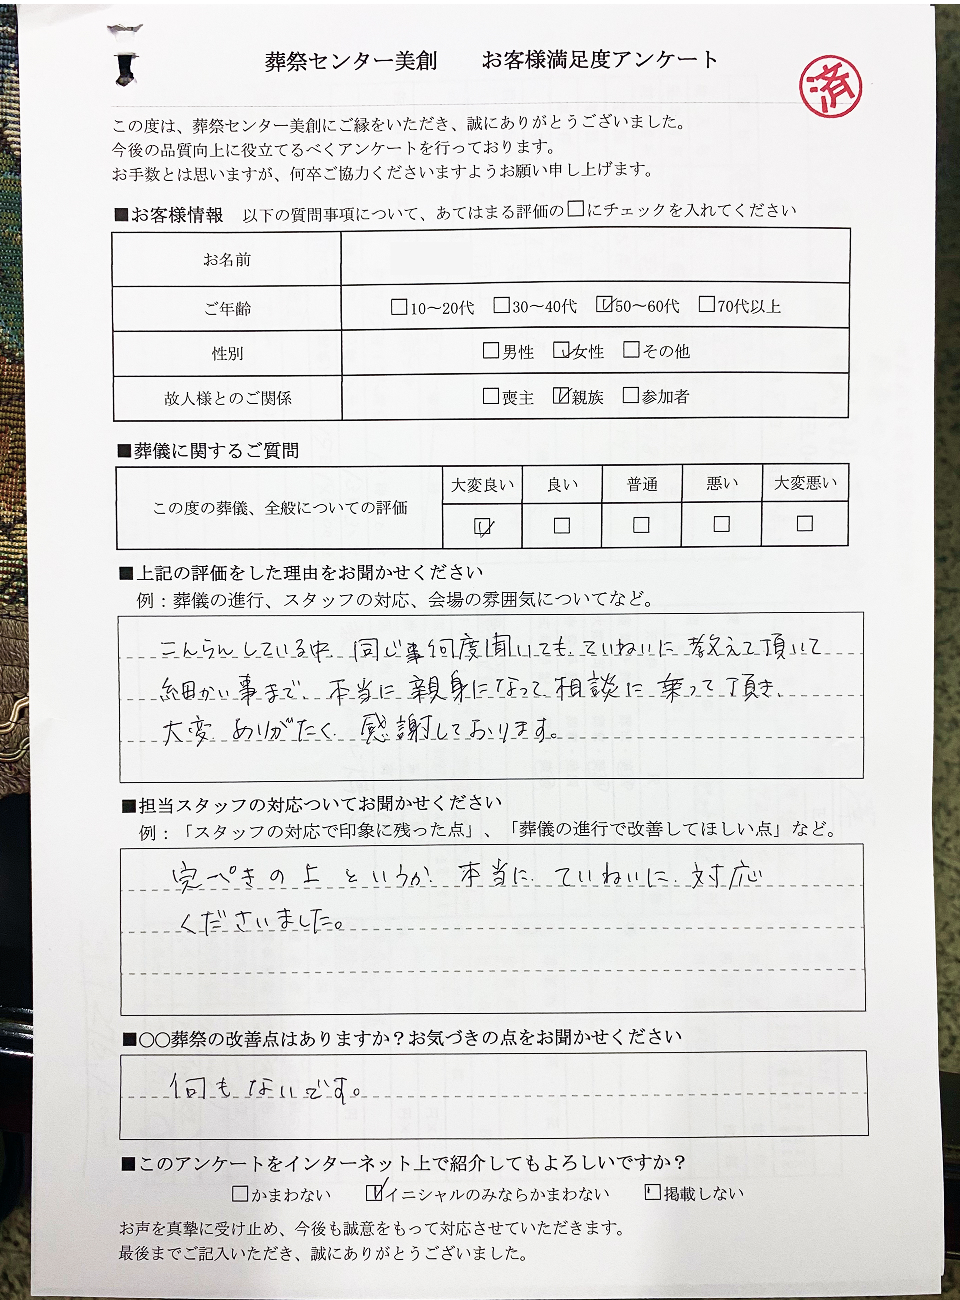 葬祭センター美創　　お客様満足度アンケート
済
この度は、葬祭センター美創にご縁をいただき、誠にありがとうございました。
今後の品質向上に役立てるべくアンケートを行っております。
お手数とは思いますが、何卒ご協力くださいますようお願い申し上げます。
■お客様情報　以下の質問事項について、あてはまる評価の□にチェックを入れてください
お名前
ご年齢　□10～20代　□30～40代　☑50～60代　□70代以上
性別　□男性　☑女性　□その他
故人様とのご関係　□喪主　☑親族　□参加者
■葬儀に関するご質問
大変良い　良い　普通　悪い　大変悪い
この度の葬儀、全般についての評価　☑　□　□　□　□
■上記の評価をした理由をお聞かせください
例：葬儀の進行、スタッフの対応、会場の雰囲気についてなど。
こんらんしている中、同じ事何度聞いても、ていねいに教えて頂いて
細かい事まで、本当に親身になって相談に乗って頂き、
大変ありがたく、感謝しております。
■担当スタッフの対応ついてお聞かせください
例：「スタッフの対応で印象に残った点」、「葬儀の進行で改善してほしい点」など。
完ぺきの上というか、本当に、ていねいに、対応
くださいました。
■○○葬祭の改善点はありますか？お気づきの点をお聞かせください
何もないです。
■このアンケートをインターネット上で紹介してもよろしいですか？
□かまわない　☑イニシャルのみならかまわない　□掲載しない
お声を真摯に受け止め、今後も誠意をもって対応させていただきます。
最後までご記入いただき、誠にありがとうございました。